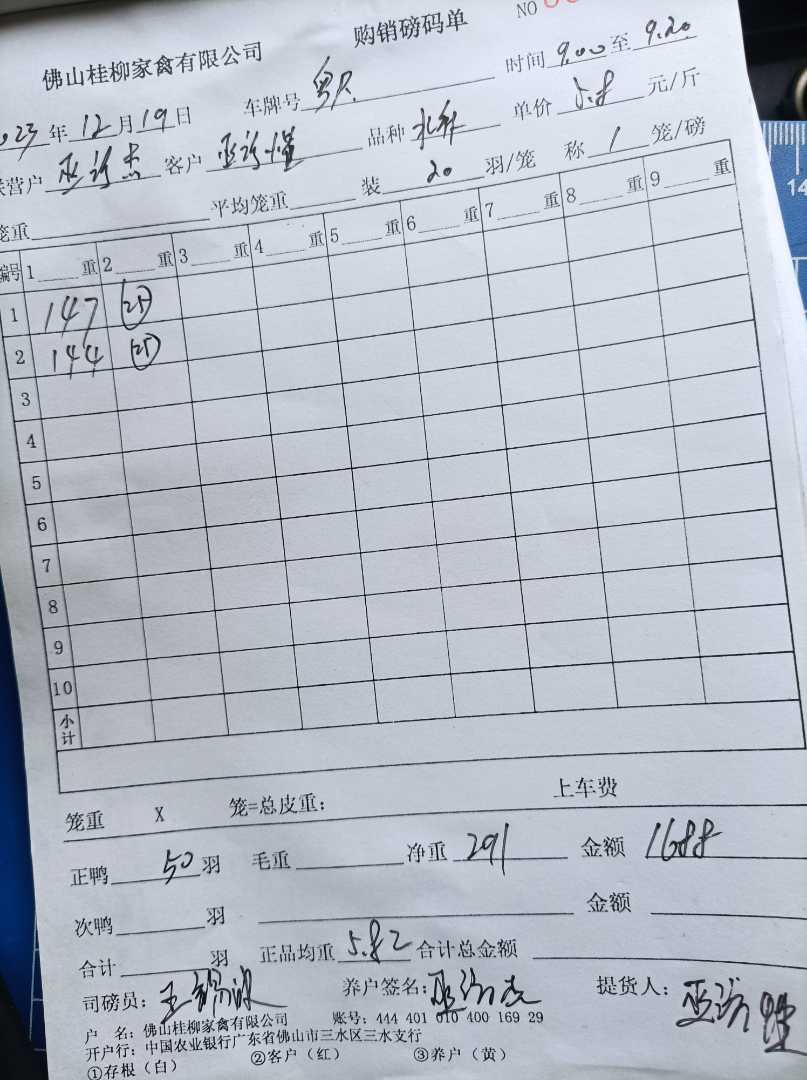 购销磅码单 NO
佛山桂柳家禽有限公司
时间 9.00 至 9.20
2023 年 12 月 19 日 车牌号
联营户 客户 品种 单价 5.8 元/斤
笼重 平均笼重 装 20 羽/笼 称 1 笼/磅
编号 1 重 2 重 3 重 4 重 5 重 6 重 7 重 8 重 9 重
1 147 25
2 144 25
3
4
5
6
7
8
9
10
小计
笼重 X 笼=总皮重: 上车费
正鸭 50 羽 毛重 净重 291 金额 1688
次鸭 羽 金额
合计 羽 正品均重 5.82 合计总金额
司磅员: 养户签名: 提货人:
户 名: 佛山桂柳家禽有限公司 账号: 444 401 010 400 169 29
开户行: 中国农业银行广东省佛山市三水区三水支行
①存根(白) ②客户(红) ③养户(黄)
14